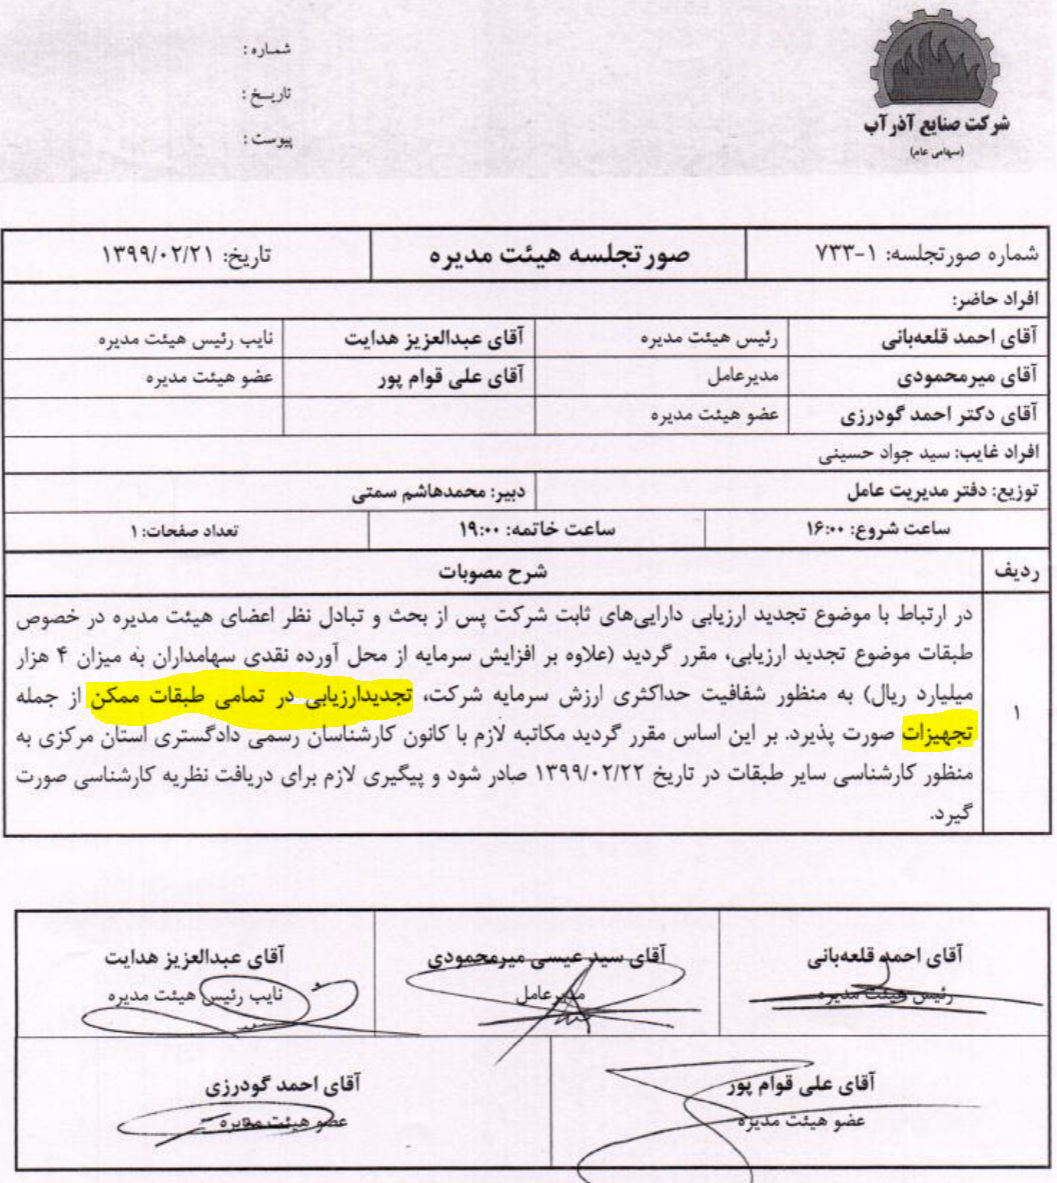 شماره :
تاریخ :
پیوست :
شرکت صنایع آذرآب
(سهامی عام)
شماره صورتجلسه: ۱-۷۳۳
صورتجلسه هیئت مدیره
تاریخ: ۱۳۹۹/۰۲/۲۱
افراد حاضر:
آقای احمد قلعه‌بانی رئیس هیئت مدیره آقای عبدالعزیز هدایت نایب رئیس هیئت مدیره
آقای میرمحمودی مدیرعامل آقای علی قوام پور عضو هیئت مدیره
آقای دکتر احمد گودرزی عضو هیئت مدیره
افراد غایب: سید جواد حسینی
توزیع: دفتر مدیریت عامل دبیر: محمدهاشم سمتی
ساعت شروع: ۱۶:۰۰ ساعت خاتمه: ۱۹:۰۰ تعداد صفحات: ۱
ردیف شرح مصوبات
۱
در ارتباط با موضوع تجدید ارزیابی دارایی‌های ثابت شرکت پس از بحث و تبادل نظر اعضای هیئت مدیره در خصوص
طبقات موضوع تجدید ارزیابی، مقرر گردید (علاوه بر افزایش سرمایه از محل آورده نقدی سهامداران به میزان ۴ هزار
میلیارد ریال) به منظور شفافیت حداکثری ارزش سرمایه شرکت، تجدیدارزیابی در تمامی طبقات ممکن از جمله
تجهیزات صورت پذیرد. بر این اساس مقرر گردید مکاتبه لازم با کانون کارشناسان رسمی دادگستری استان مرکزی به
منظور کارشناسی سایر طبقات در تاریخ ۱۳۹۹/۰۲/۲۲ صادر شود و پیگیری لازم برای دریافت نظریه کارشناسی صورت
گیرد.
آقای احمد قلعه‌بانی
رئیس هیئت مدیره
آقای سید عیسی میرمحمودی
مدیرعامل
آقای عبدالعزیز هدایت
نایب رئیس هیئت مدیره
آقای علی قوام پور
عضو هیئت مدیره
آقای احمد گودرزی
عضو هیئت مدیره